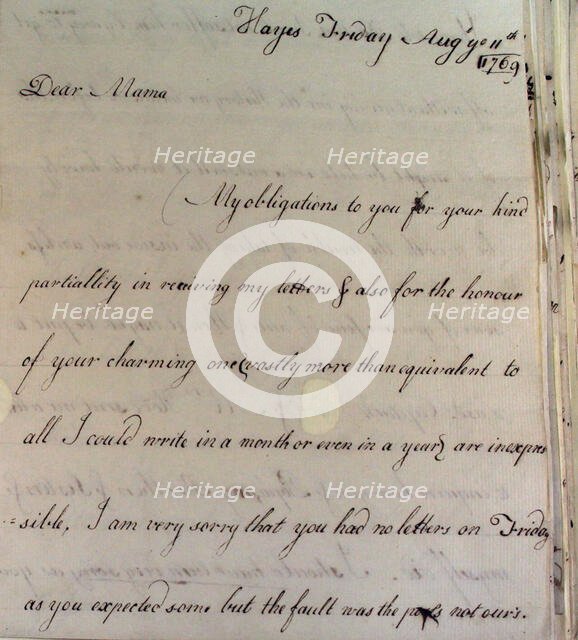 Hayes Friday Augt ye 11th
1769
Dear Mama
My obligations to you for your kind
partiallity in reciving my letters & also for the honour
of your charming one (vastly more than equivalent to
all I could write in a month or even in a year) are inexpres
=sible, I am very sorry that you had no letters on Friday
as you expected some but the fault was the post's not ours.
Heritage Heritage Heritage
Heritage Heritage
Heritage Heritage Heritage
Heritage Heritage
©